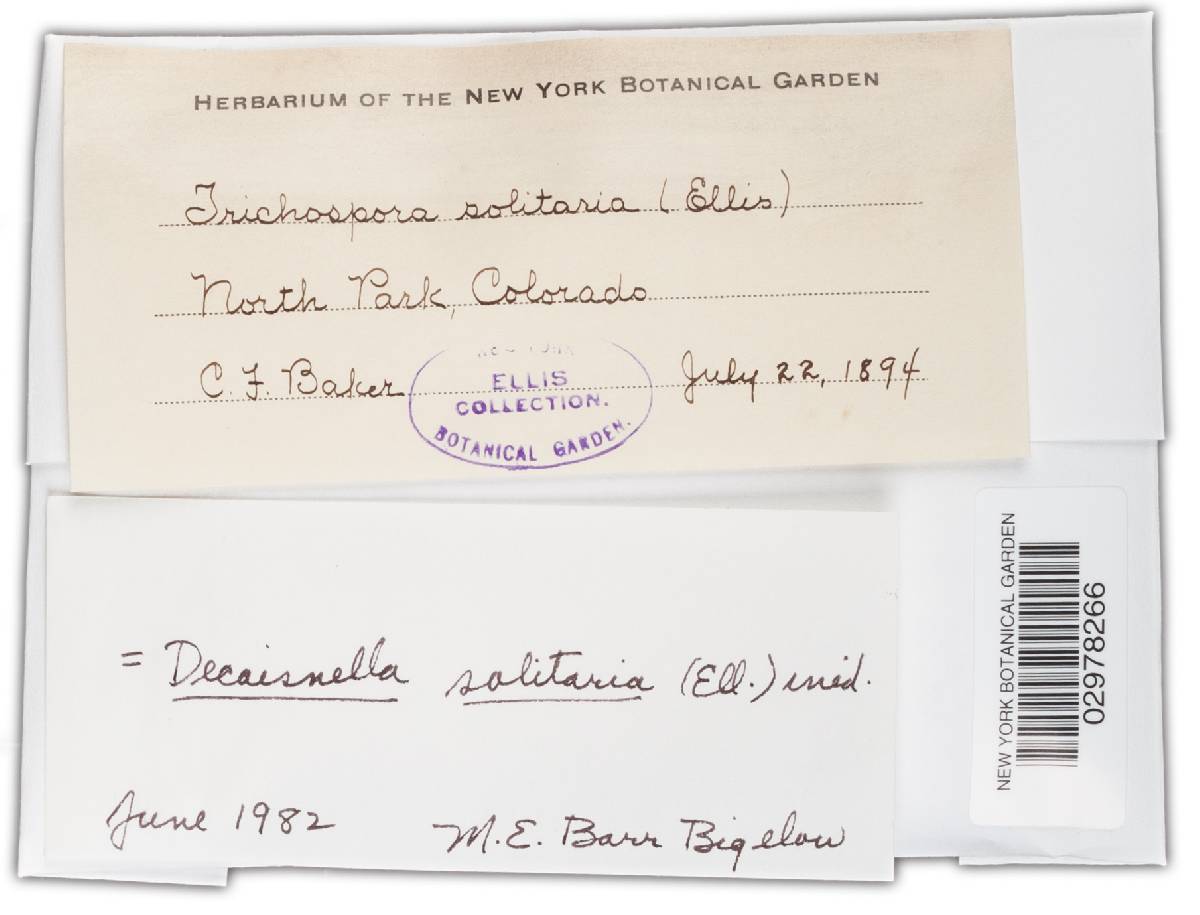 HERBARIUM OF THE NEW YORK BOTANICAL GARDEN
Trichospora solitaria (Ellis)
North Park, Colorado
C. F. Baker July 22, 1894
NEW YORK
ELLIS
COLLECTION.
BOTANICAL GARDEN.
= Decaisnella solitaria (Ell.) ined.
June 1982 M. E. Barr Bigelow
NEW YORK BOTANICAL GARDEN
02978266